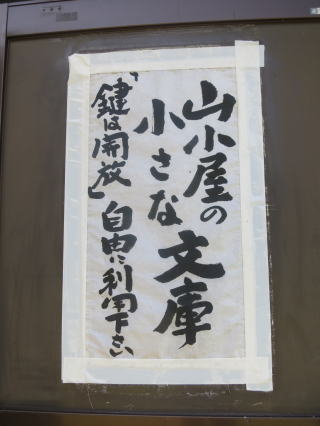 山小屋の
小さな文庫
「鍵は開放」自由に利用下さい